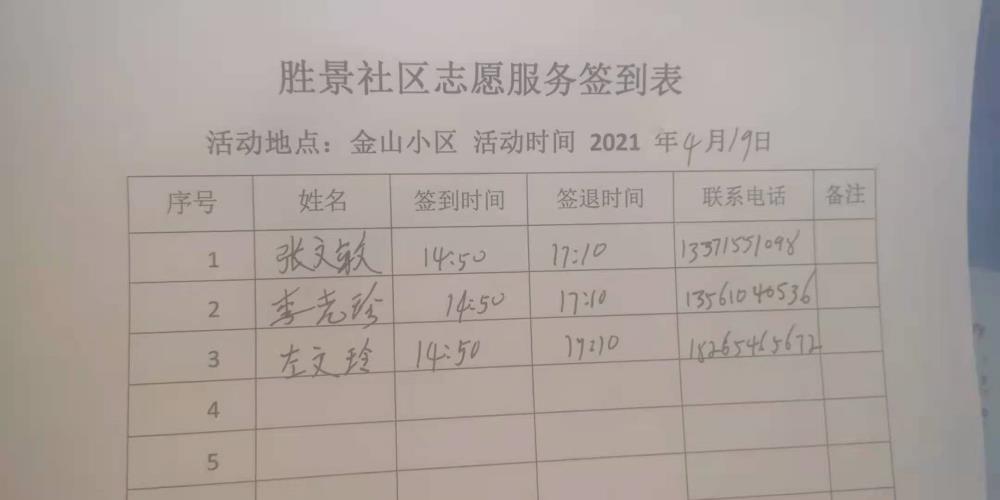 胜景社区志愿服务签到表
活动地点：金山小区 活动时间 2021 年4月19日
序号 姓名 签到时间 签退时间 联系电话 备注
1 张文敏 14:50 17:10 13371551098
2 李尧珍 14:50 17:10 13561040536
3 左文玲 14:50 17:10 18265465672
4
5